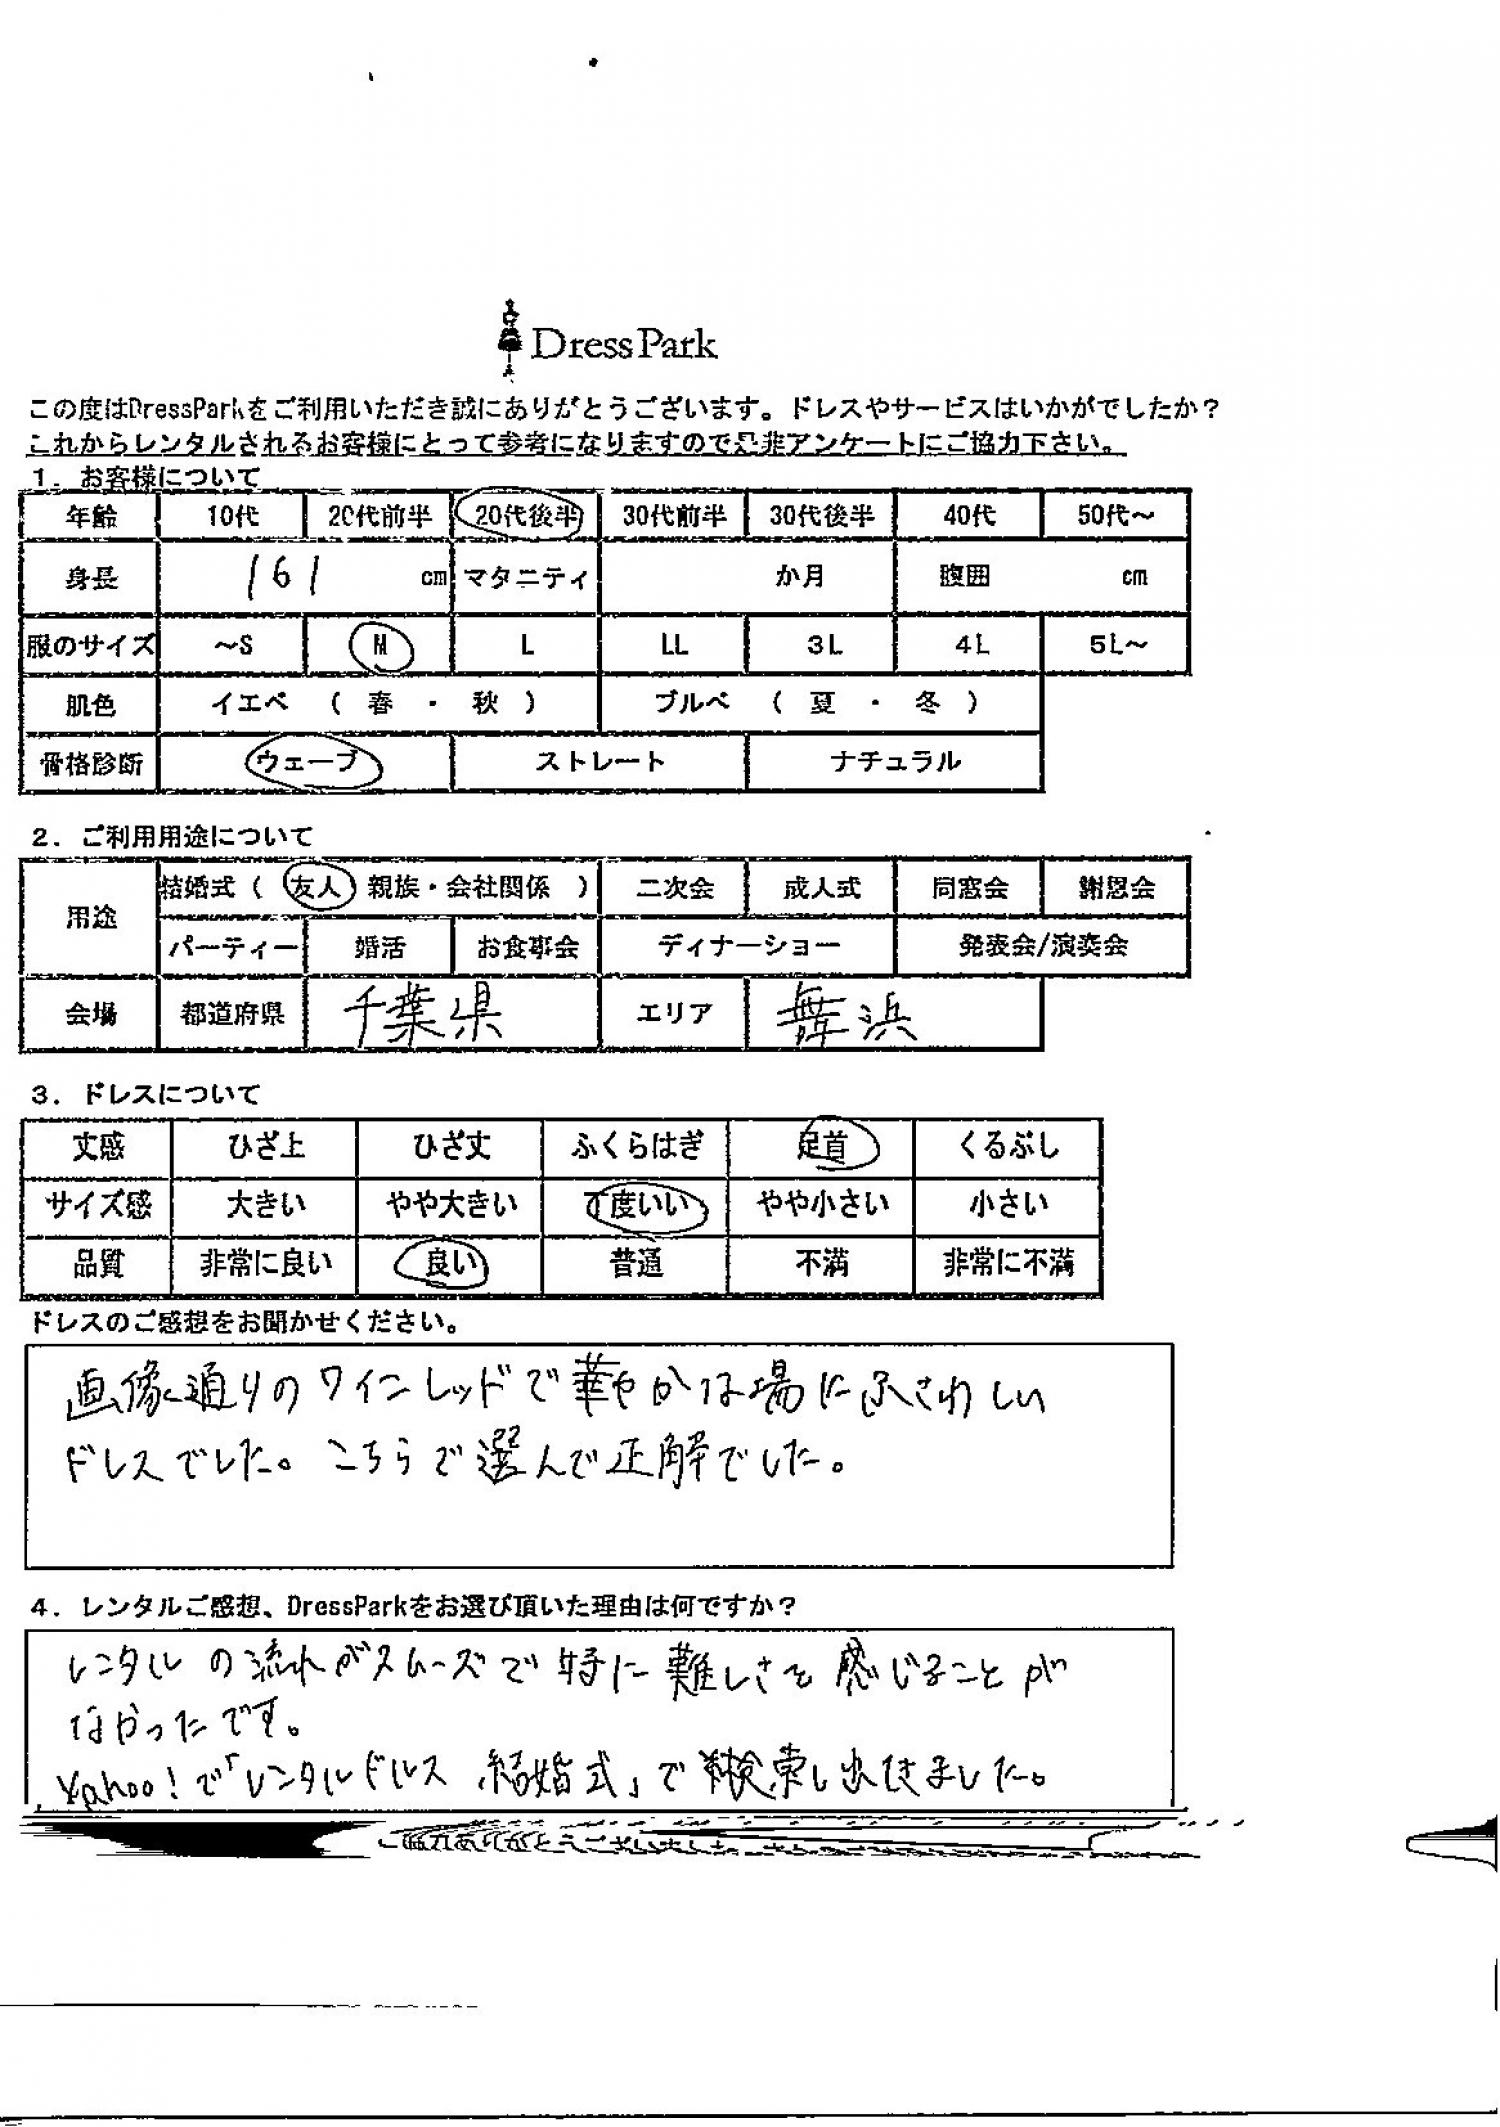 DressPark
この度はDressParkをご利用いただき誠にありがとうございます。ドレスやサービスはいかがでしたか？
これからレンタルされるお客様にとって参考になりますので是非アンケートにご協力下さい。
1．お客様について
年齢 10代 20代前半 20代後半 30代前半 30代後半 40代 50代～
身長 161 cm マタニティ か月 腹囲 cm
服のサイズ ～S M L LL 3L 4L 5L～
肌色 イエベ （ 春 ・ 秋 ） ブルベ （ 夏 ・ 冬 ）
骨格診断 ウェーブ ストレート ナチュラル
2．ご利用用途について
用途 結婚式（ 友人 親族・会社関係 ） 二次会 成人式 同窓会 謝恩会
パーティー 婚活 お食事会 ディナーショー 発表会/演奏会
会場 都道府県 千葉県 エリア 舞浜
3．ドレスについて
丈感 ひざ上 ひざ丈 ふくらはぎ 足首 くるぶし
サイズ感 大きい やや大きい 丁度いい やや小さい 小さい
品質 非常に良い 良い 普通 不満 非常に不満
ドレスのご感想をお聞かせください。
画像通りのワインレッドで華やかな場にふさわしい
ドレスでした。こちらで選んで正解でした。
4．レンタルご感想、DressParkをお選び頂いた理由は何ですか？
レンタルの流れがスムーズで特に難しさを感じることが
なかったです。
Yahoo!で「レンタルドレス 結婚式」で検索し出てきました。
ご協力ありがとうございました